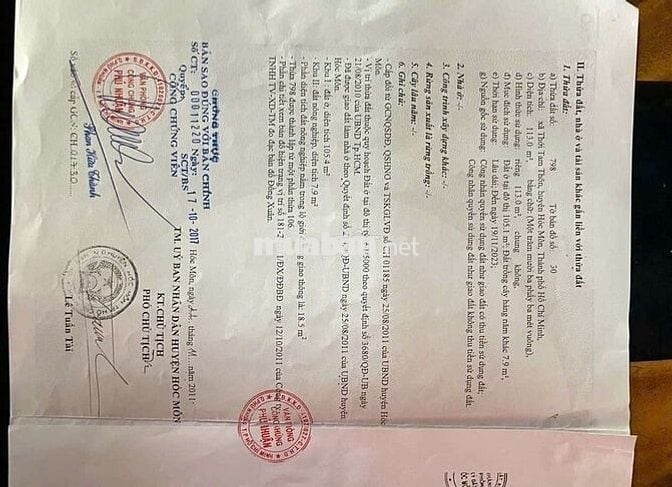 II. Thửa đất, nhà ở và tài sản khác gắn liền với thửa đất
1. Thửa đất:
a) Thửa đất số: 798 Tờ bản đồ số: 30
b) Địa chỉ: xã Thới Tam Thôn, huyện Hóc Môn, Thành phố Hồ Chí Minh,
c) Diện tích: 113.0 m², bằng chữ: (Một trăm mười ba phẩy ba mét vuông),
d) Hình thức sử dụng: riêng 113.0 m², chung không,
đ) Mục đích sử dụng: Đất ở tại đô thị 105.1 m², Đất trồng cây hàng năm khác 7.9 m²,
e) Thời hạn sử dụng: Lâu dài; Đến ngày 19/11/2023;
g) Nguồn gốc sử dụng: Công nhận quyền sử dụng đất như giao đất có thu tiền sử dụng đất;
Công nhận quyền sử dụng đất như giao đất không thu tiền sử dụng đất.
2. Nhà ở: -/-
3. Công trình xây dựng khác: -/-
4. Rừng sản xuất là rừng trồng: -/-
5. Cây lâu năm: -/-
6. Ghi chú:
- Cấp đổi từ GCNQSDĐ, QSHNO và TSKGLVD số CH 01185 ngày 25/08/2011 của UBND huyện Hóc
Môn.
- Vị trí thửa đất thuộc quy hoạch Đất ở tại đô thị tỷ 5000 theo quyết định số 3680/QĐ-UB ngày
21/08/2011 của UBND Tp.HCM.
- Đã được giao đất làm nhà ở theo Quyết định số QĐ-UBND ngày 25/08/2011 của UBND huyện
Hóc Môn.
- Khu I: đất ở, diện tích 105.4 m²
- Khu II: đất nông nghiệp, diện tích 7.9 m²
- Phần diện tích đất nông nghiệp nằm trong lộ giới giao thông là: 18.5 m²
- Thửa 798 được thành lập từ một phần thửa 106.
- Phần chi tiết xem bản đồ hiện trạng vị trí số 181-2 1/ĐX/ĐĐBĐ ngày 12/10/2011 của C
TNHH TV-XD-TM đo đạc bản đồ Đồng Xuân.
Hóc Môn, ngày tháng 11 năm 2011
TM. ỦY BAN NHÂN DÂN HUYỆN HÓC MÔN
KT.CHỦ TỊCH
PHÓ CHỦ TỊCH
Lê Tuấn Tài
CHỨNG THỰC
BẢN SAO ĐÚNG VỚI BẢN CHÍNH
Số CT: 00011220 Ngày: 17-10-2017
Quyển: SCT/BS
CÔNG CHỨNG VIÊN
VĂN PHÒNG
CÔNG CHỨNG
PHÚ NHUẬN
Phan Hữu Thành
VĂN PHÒNG
CÔNG CHỨNG
PHÚ NHUẬN
muaban.net